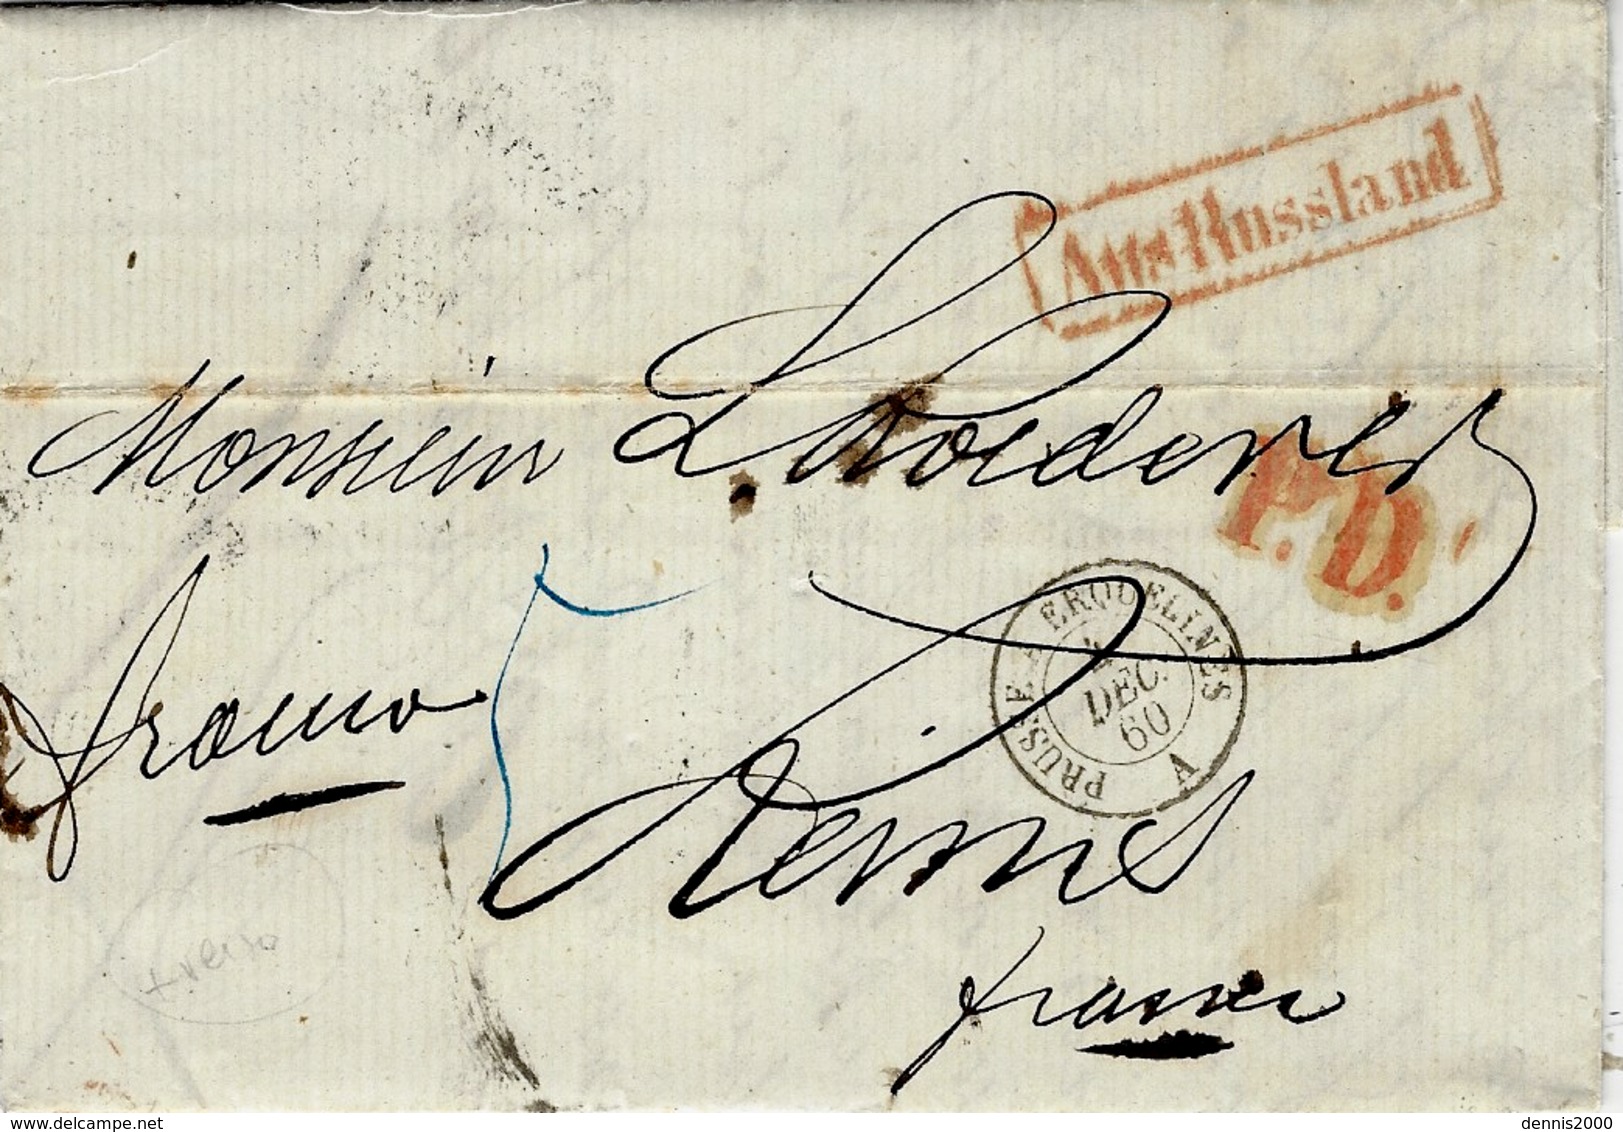 Aus Russland
Monsieur L. Roederer
P.D.
franco
PRUSSE ERQUELINES A
DEC.
60
Reims
france
+ verso
delcampe.net
dennis2000